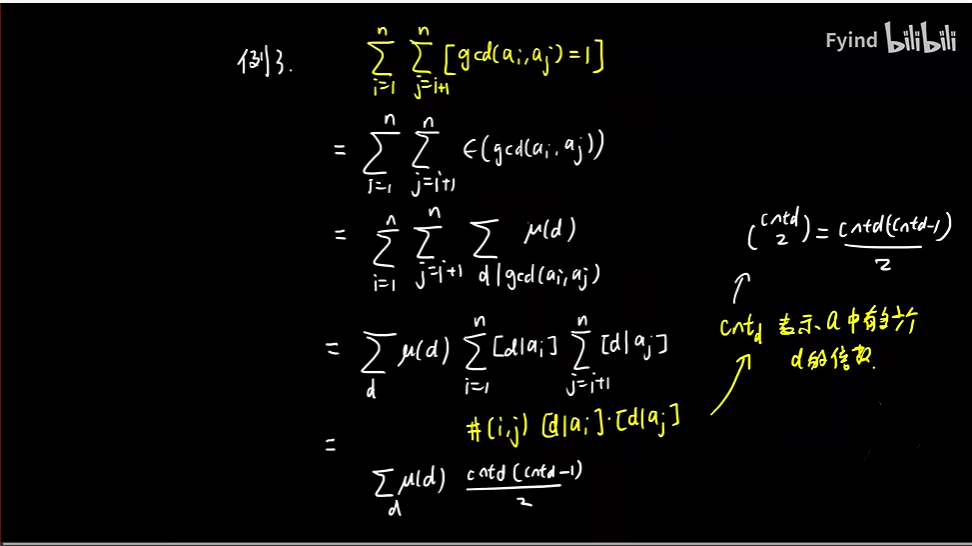 Fyind bilibili
例3.
∑_{i=1}^{n} ∑_{j=i+1}^{n} [gcd(a_i, a_j) = 1]
= ∑_{i=1}^{n} ∑_{j=i+1}^{n} ϵ(gcd(a_i, a_j))
= ∑_{i=1}^{n} ∑_{j=i+1}^{n} ∑_{d|gcd(a_i, a_j)} μ(d)
= ∑_d μ(d) ∑_{i=1}^{n} [d|a_i] ∑_{j=i+1}^{n} [d|a_j]
#(i,j) [d|a_i]·[d|a_j]
= ∑_d μ(d) cntd(cntd-1)/2
(cntd 2) = cntd(cntd-1)/2
cnt_d 表示 a 中有多少个
d的倍数.